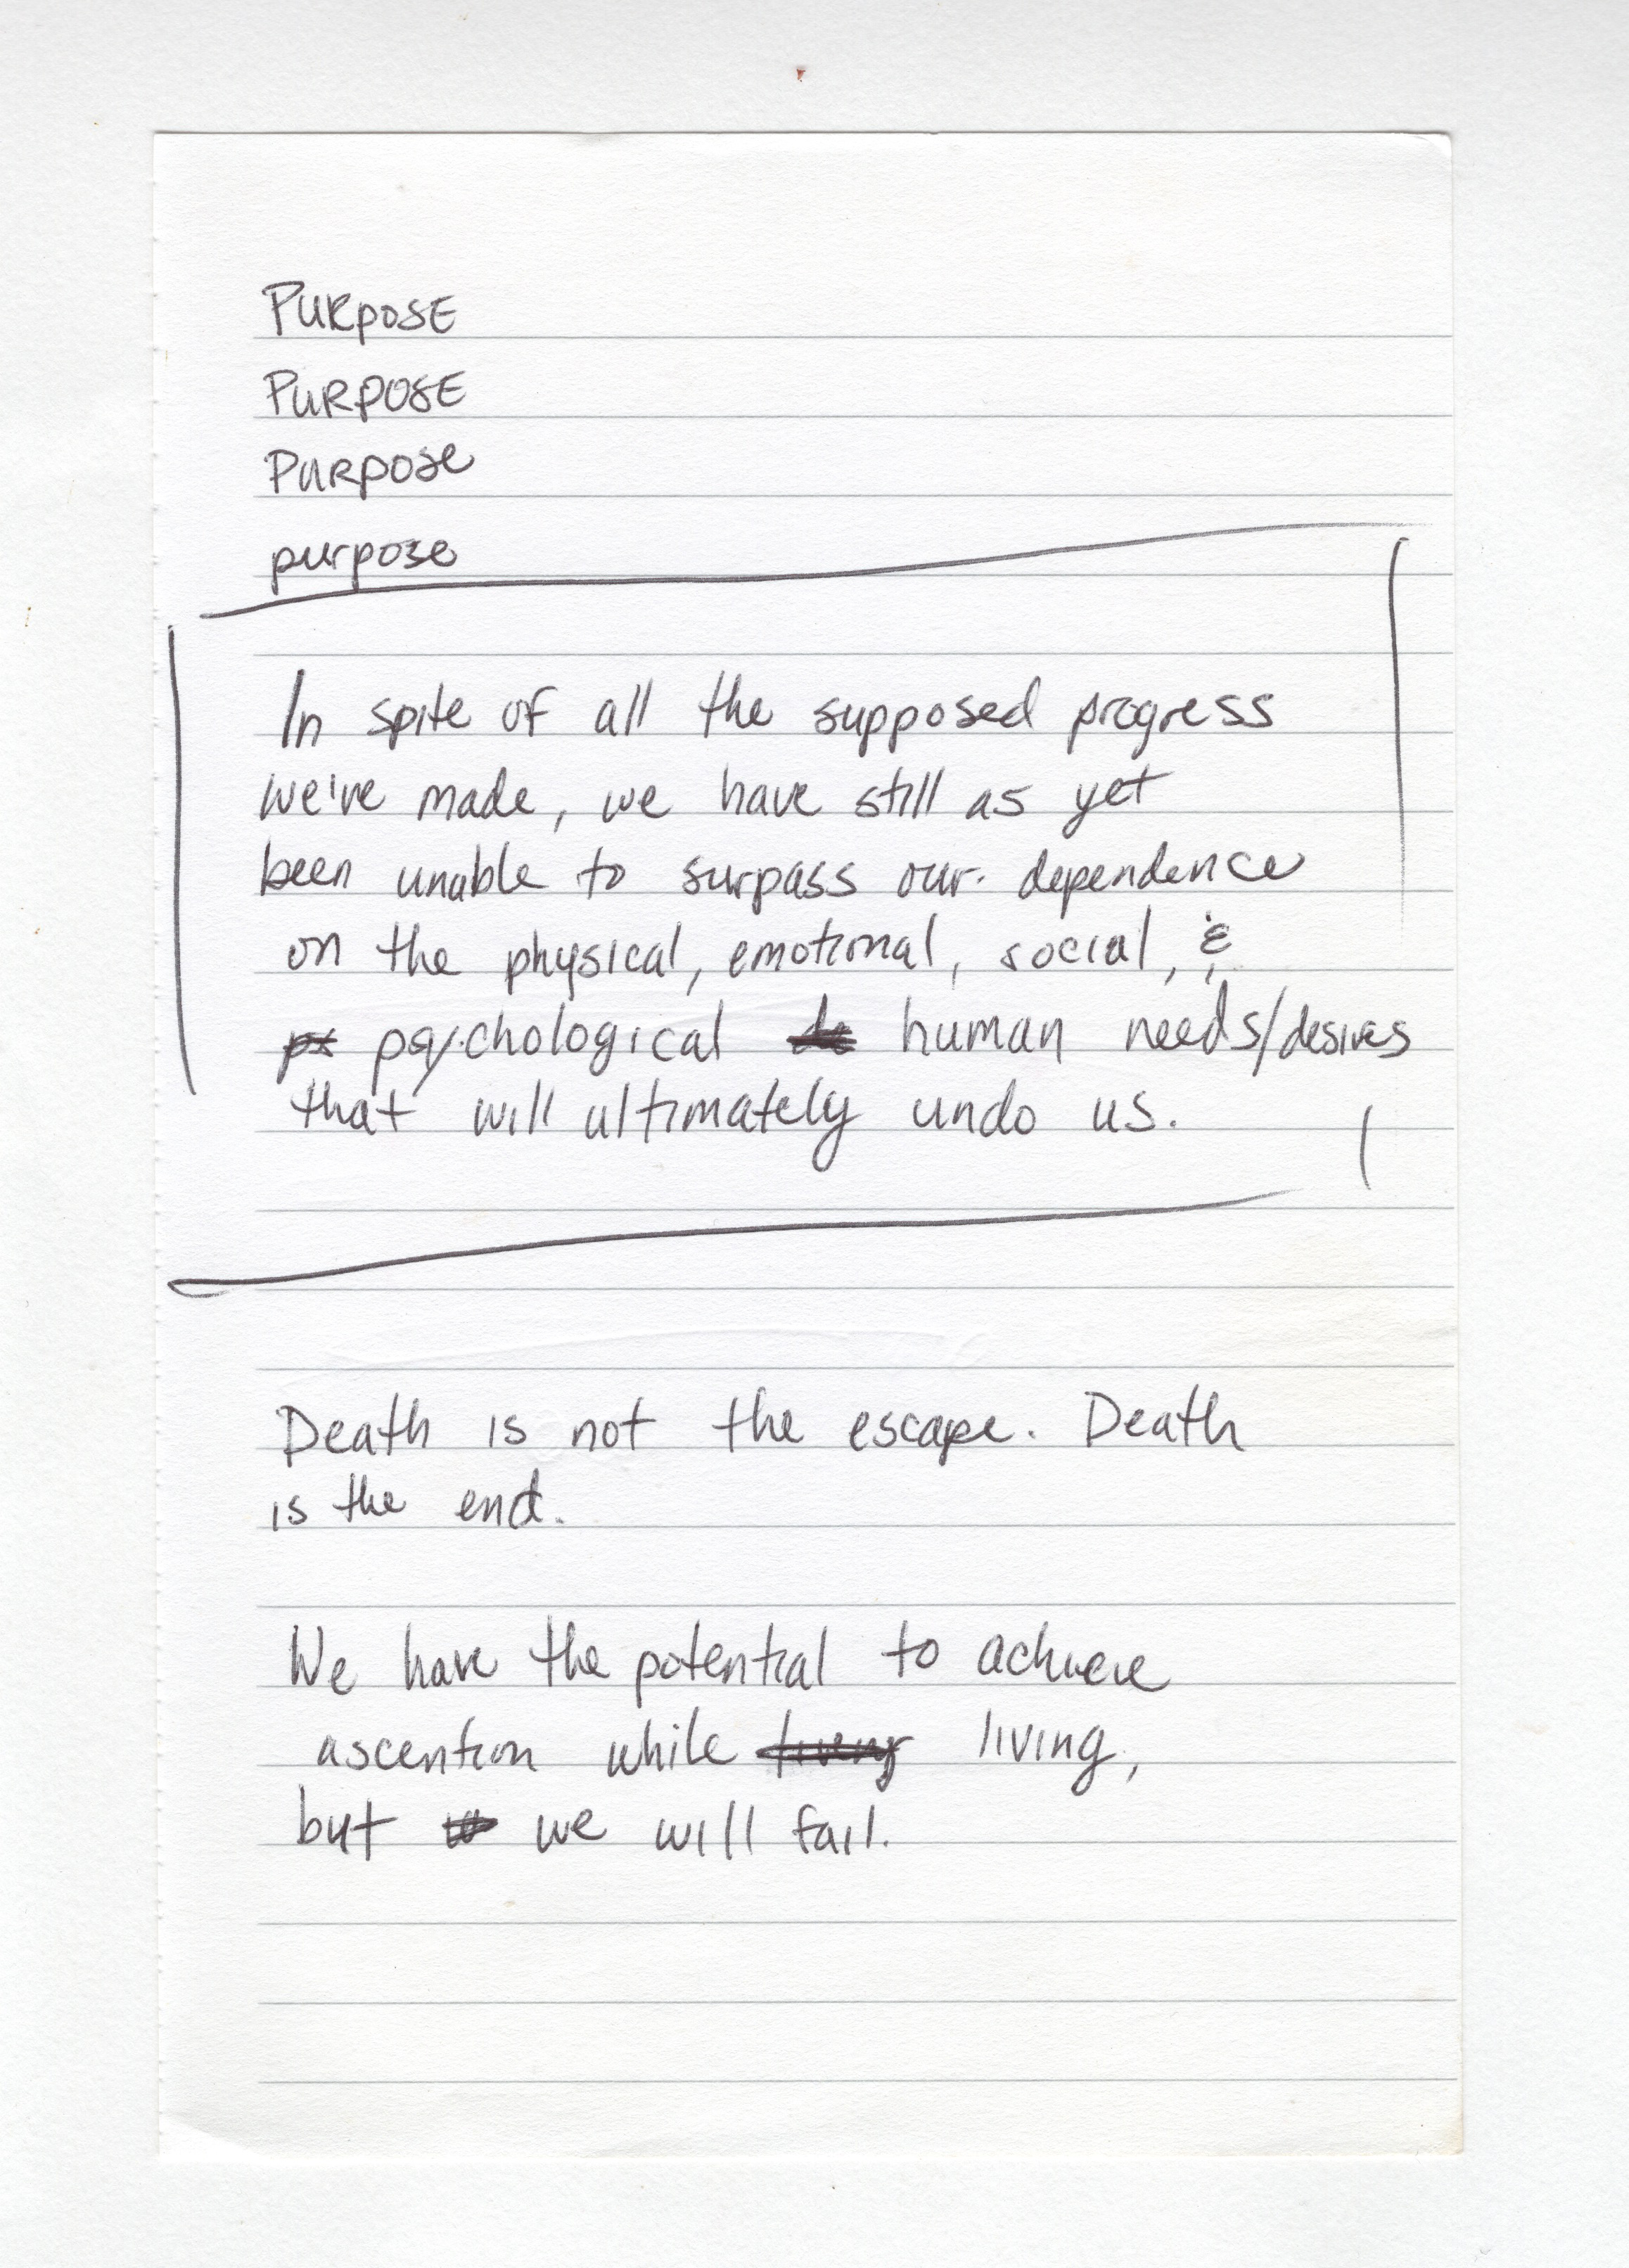 PURpOSE
PURPOSE
PURPOSe
purpose
In spite of all the supposed progress
we've made, we have still as yet
been unable to surpass our dependence
on the physical, emotional, social, &
ps psychological de human needs/desires
that will ultimately undo us.
Death is not the escape. Death
is the end.
We have the potential to achieve
ascention while living,
but we will fail.